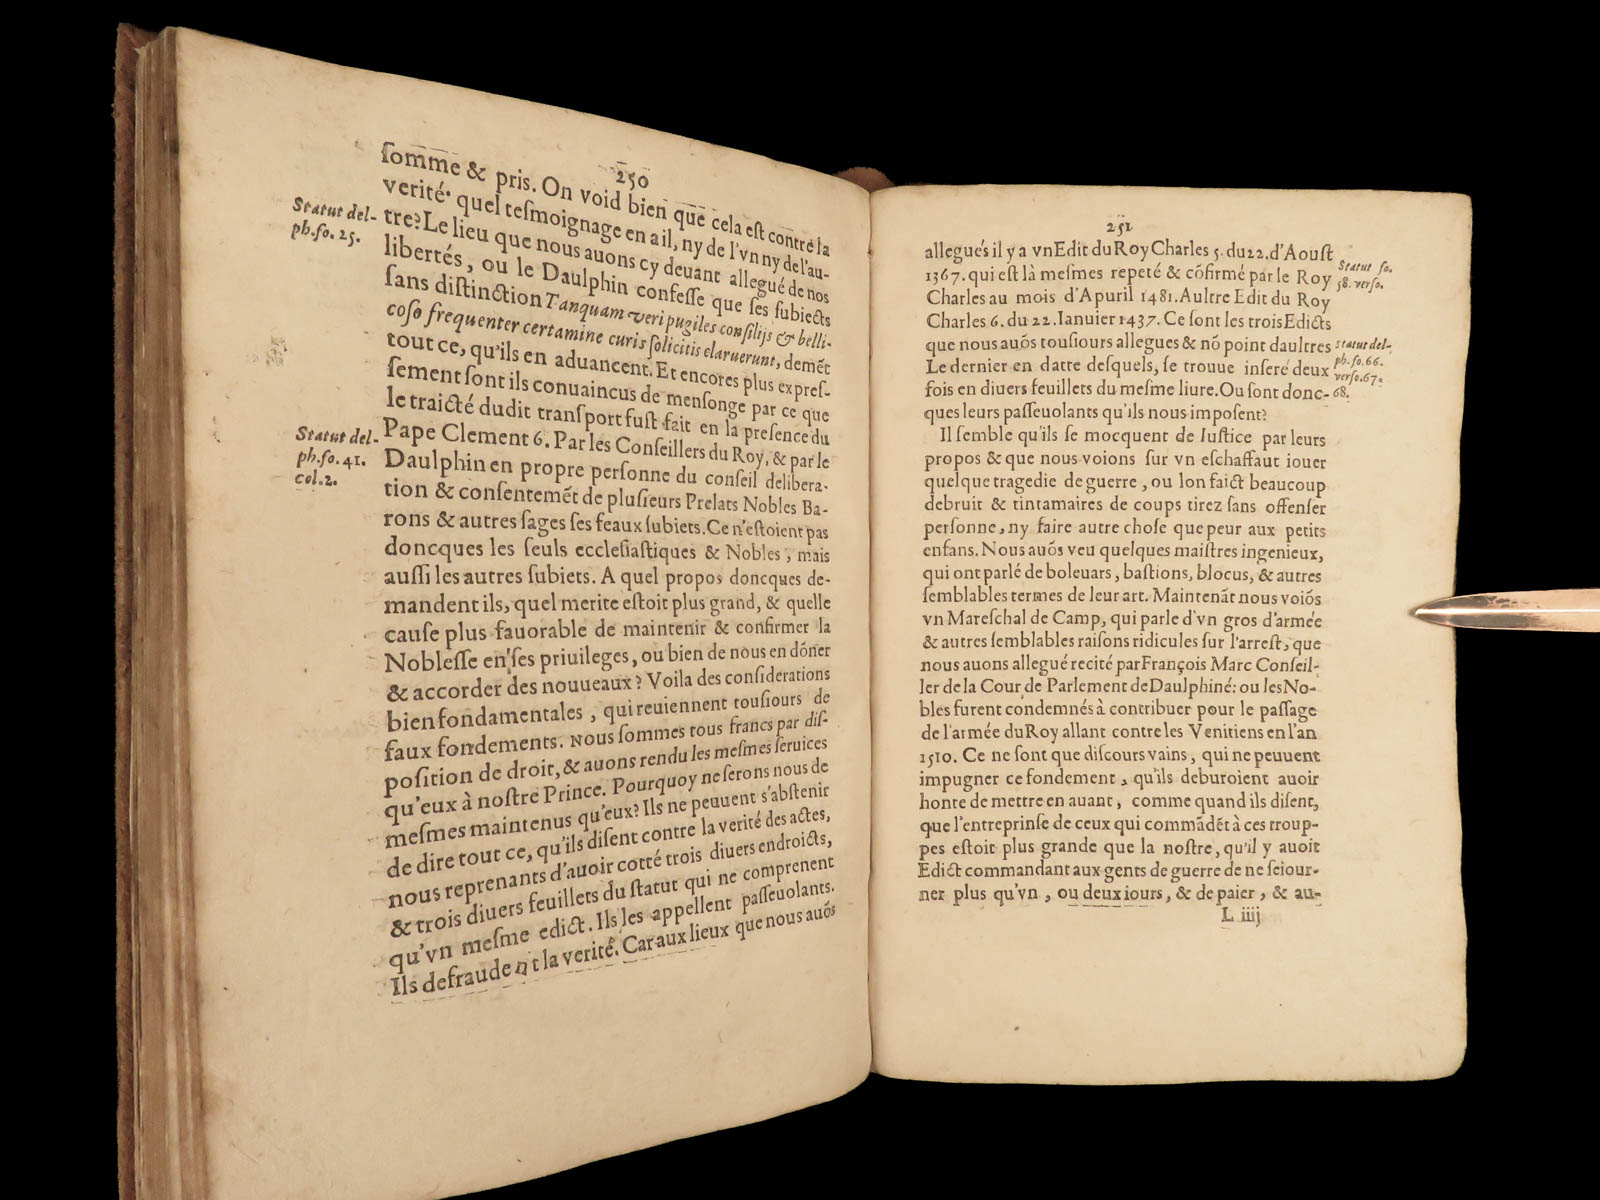 250
ſomme & pris. On void bien que cela eſt contre la
verité· quel teſmoignage en a il, ny de l'vn ny de l'au-
Statut del-
ph. fo. 25.
tre? Le lieu que nous auons cy deuant allegué de nos
libertés, ou le Daulphin confeſſe que ſes ſubiects
ſans diſtinction Tanquam veri pugiles conſilijs & belli-
coſo frequenter certamine curis ſolicitis claruerunt, demẽt
tout ce, qu'ils en aduancent. Et encores plus expreſ-
ſement ſont ils conuaincus de menſonge par ce que
le traicté dudit tranſport fuſt fait en la preſence du
Statut del-
ph. fo. 41.
col. 2.
Pape Clement 6. Par les Conſeillers du Roy, & par le
Daulphin en propre perſonne du conſeil delibera-
tion & conſentemẽt de pluſieurs Prelats Nobles Ba-
rons & autres ſages ſes feaux ſubiets. Ce n'eſtoient pas
doncques les ſeuls eccleſiaſtiques & Nobles, mais
auſſi les autres ſubiets. A quel propos doncques de-
mandent ils, quel merite eſtoit plus grand, & quelle
cauſe plus fauorable de maintenir & confirmer la
Nobleſſe en ſes priuileges, ou bien de nous en dõner
& accorder des nouueaux? Voila des conſiderations
bien fondamentales, qui reuiennent touſiours de
faux fondements. Nous ſommes tous francs par diſ-
poſition de droit, & auons rendu les meſmes ſeruices
qu'eux à noſtre Prince. Pourquoy ne ſerons nous de
meſmes maintenus qu'eux? Ils ne peuuent s'abſtenir
de dire tout ce, qu'ils diſent contre la verité des actes,
nous reprenants d'auoir cotté trois diuers endroicts,
& trois diuers feuillets du ſtatut qui ne comprenent
qu'vn meſme edict. Ils les appellent paſſeuolants.
Ils defraudent la verité. Car aux lieux que nous auõs
251
allegués il y a vn Edit du Roy Charles 5. du 22. d'Aouſt
1367. qui eſt là meſmes repeté & cõfirmé par le Roy
Statut fo.
58. verſo.
Charles au mois d'Apuril 1481. Aultre Edit du Roy
Charles 6. du 22. Ianuier 1437. Ce ſont les trois Edicts
que nous auõs touſiours allegues & nõ point daultres
Statut del-
ph. fo. 66.
verſo. 67.
68.
Le dernier en datte deſquels, ſe trouue inſeré deux
fois en diuers feuillets du meſme liure. Ou ſont donc-
ques leurs paſſeuolants qu'ils nous impoſent?
Il ſemble qu'ils ſe mocquent de Iuſtice par leurs
propos & que nous voions ſur vn eſchaffaut iouer
quelque tragedie de guerre, ou lon faict beaucoup
debruit & tintamaires de coups tirez ſans offenſer
perſonne, ny faire autre choſe que peur aux petits
enfans. Nous auõs veu quelques maiſtres ingenieux,
qui ont parlé de boleuars, baſtions, blocus, & autres
ſemblables termes de leur art. Maintenãt nous voiõs
vn Mareſchal de Camp, qui parle d'vn gros d'armée
& autres ſemblables raiſons ridicules ſur l'arreſt, que
nous auons allegué recité par François Marc Conſeil-
ler de la Cour de Parlement de Daulphiné: ou les No-
bles furent condemnés à contribuer pour le paſſage
de l'armée du Roy allant contre les Venitiens en l'an
1510. Ce ne ſont que diſcours vains, qui ne peuuent
impugner ce fondement, qu'ils deburoient auoir
honte de mettre en auant, comme quand ils diſent,
que l'entreprinſe de ceux qui commãdẽt à ces troup-
pes eſtoit plus grande que la noſtre, qu'il y auoit
Edict commandant aux gents de guerre de ne ſeiour-
ner plus qu'vn, ou deux iours, & de paier, & au-
L iiij